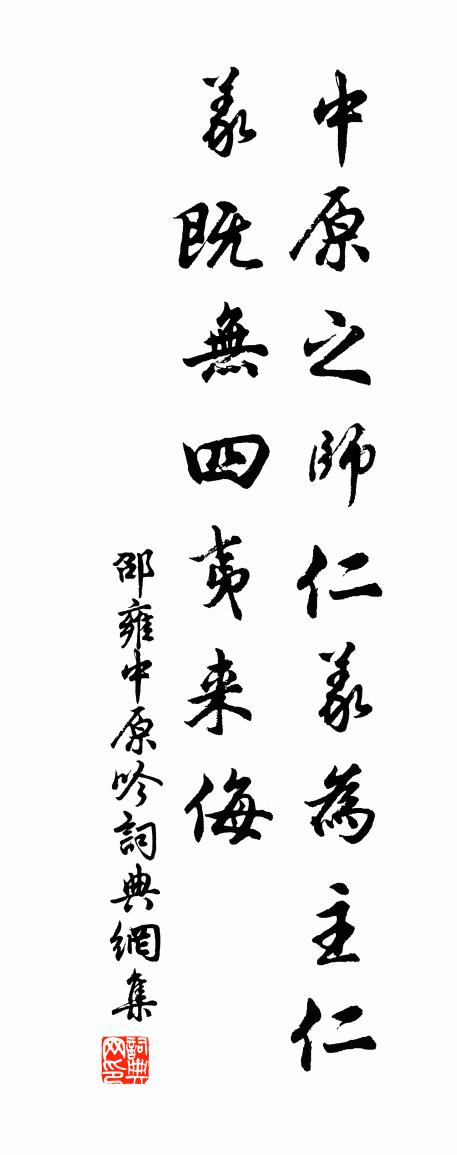 中原之師仁義為主仁
義既無四夷来侮
邵雍中原吟詞典網集
詞典网印